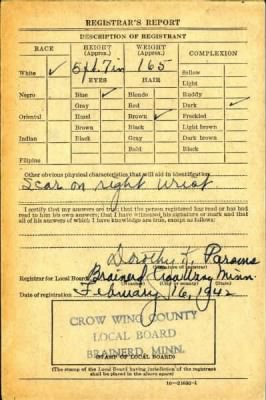 REGISTRAR'S REPORT
DESCRIPTION OF REGISTRANT
RACE
HEIGHT (Approx.)
WEIGHT (Approx.)
COMPLEXION
White ✓
5 ft. 7 in
165
Sallow
EYES
HAIR
Light
Negro
Blue ✓
Blonde
Ruddy
Gray
Red
Dark ✓
Oriental
Hazel
Brown ✓
Freckled
Brown
Black
Light brown
Indian
Black
Gray
Dark brown
Bald
Black
Filipino
Other obvious physical characteristics that will aid in identification
Scar on right wrist
I certify that my answers are true; that the person registered has read or has had
read to him his own answers; that I have witnessed his signature or mark and that
all of his answers of which I have knowledge are true, except as follows:
Dorothy Parsons
Registrar for Local Board
Brainerd Crow Wing Minn.
Date of registration
February 16, 1942
CROW WING COUNTY
LOCAL BOARD
BRAINERD, MINN.
(STAMP OF LOCAL BOARD)
(The stamp of the Local Board having jurisdiction of the registrant
shall be placed in the above space)